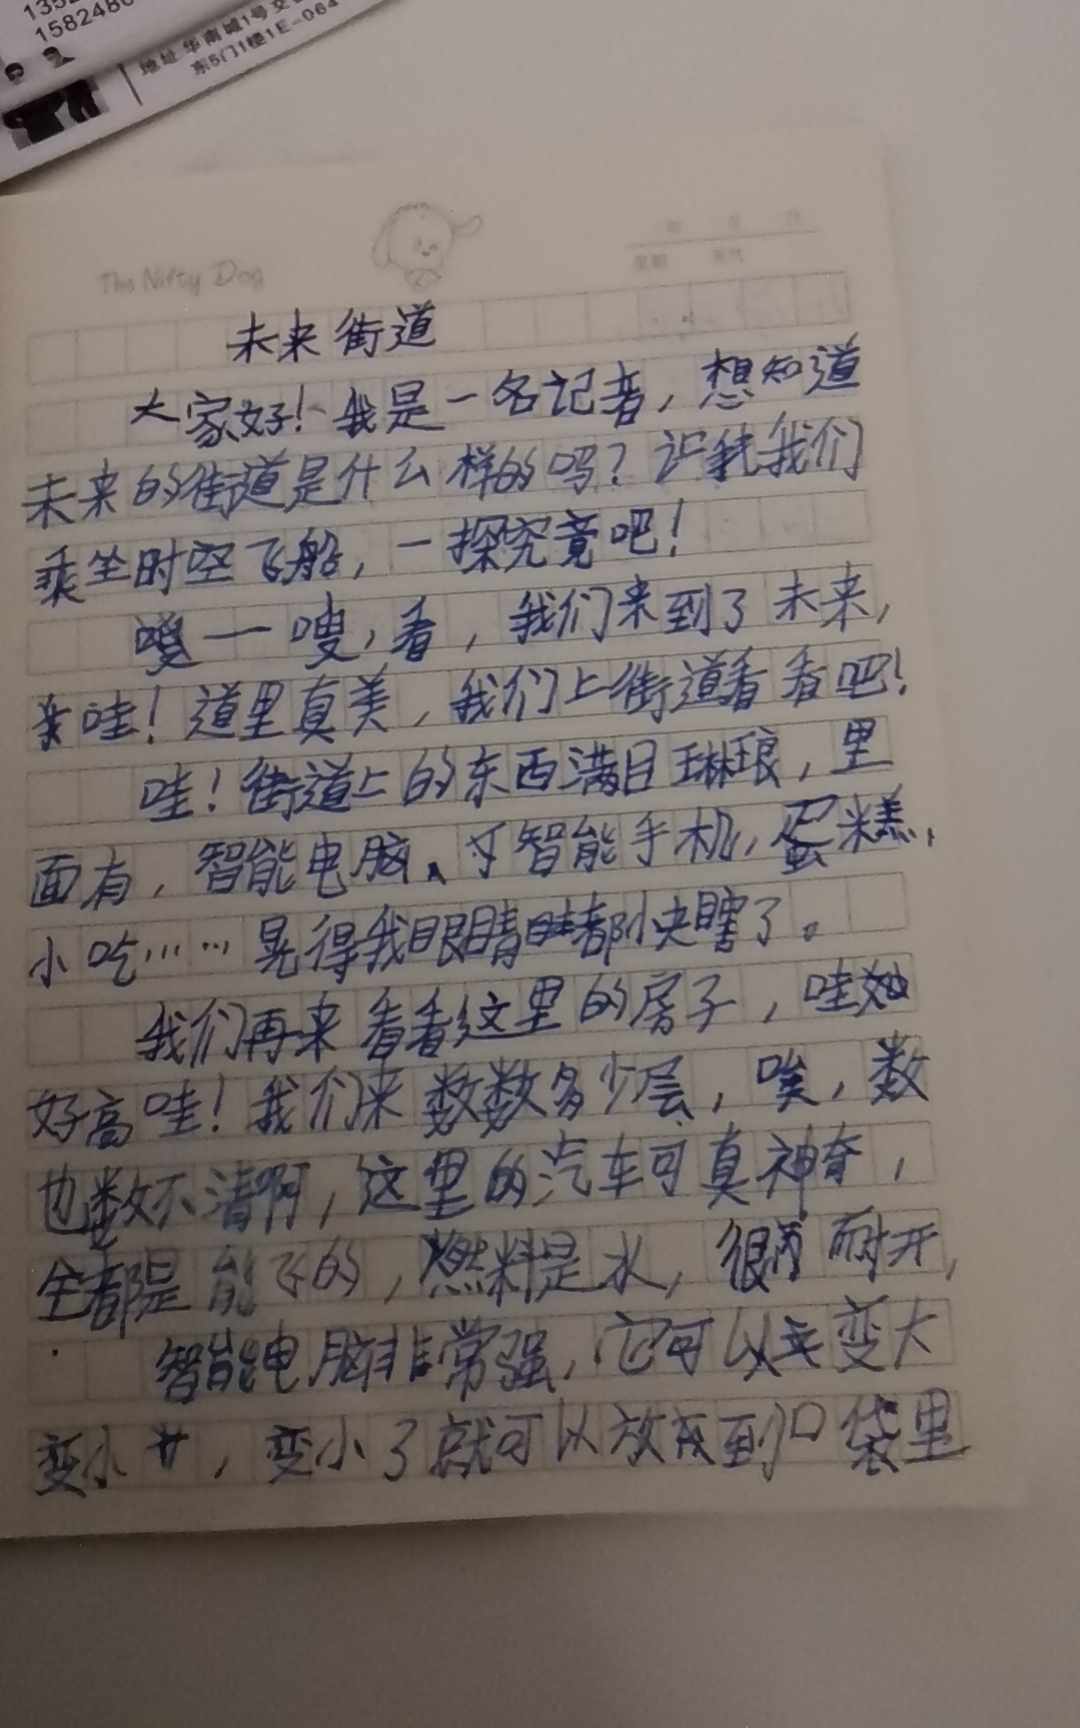 1582480
地址 华南城1号交
东5门1楼1E-064
The Nifty Dog
年 月 日
星期 天气
未来街道
大家好！我是一名记者，想知道
未来的街道是什么样的吗？让我们
乘坐时空飞船，一探究竟吧！
嗖一嗖，看，我们来到了未来，
哇！道里真美，我们上街道看看吧！
哇！街道上的东西满目琳琅，里
面有，智能电脑、智能手机，蛋糕，
小吃……晃得我眼睛都快瞎了。
我们再来看看这里的房子，哇
好高哇！我们来数数多少层，唉，数
也数不清啊，这里的汽车可真神奇，
全都是能飞的，燃料是水，很耐开，
智能电脑非常强，它可以变大
变小，变小了就可以放到口袋里